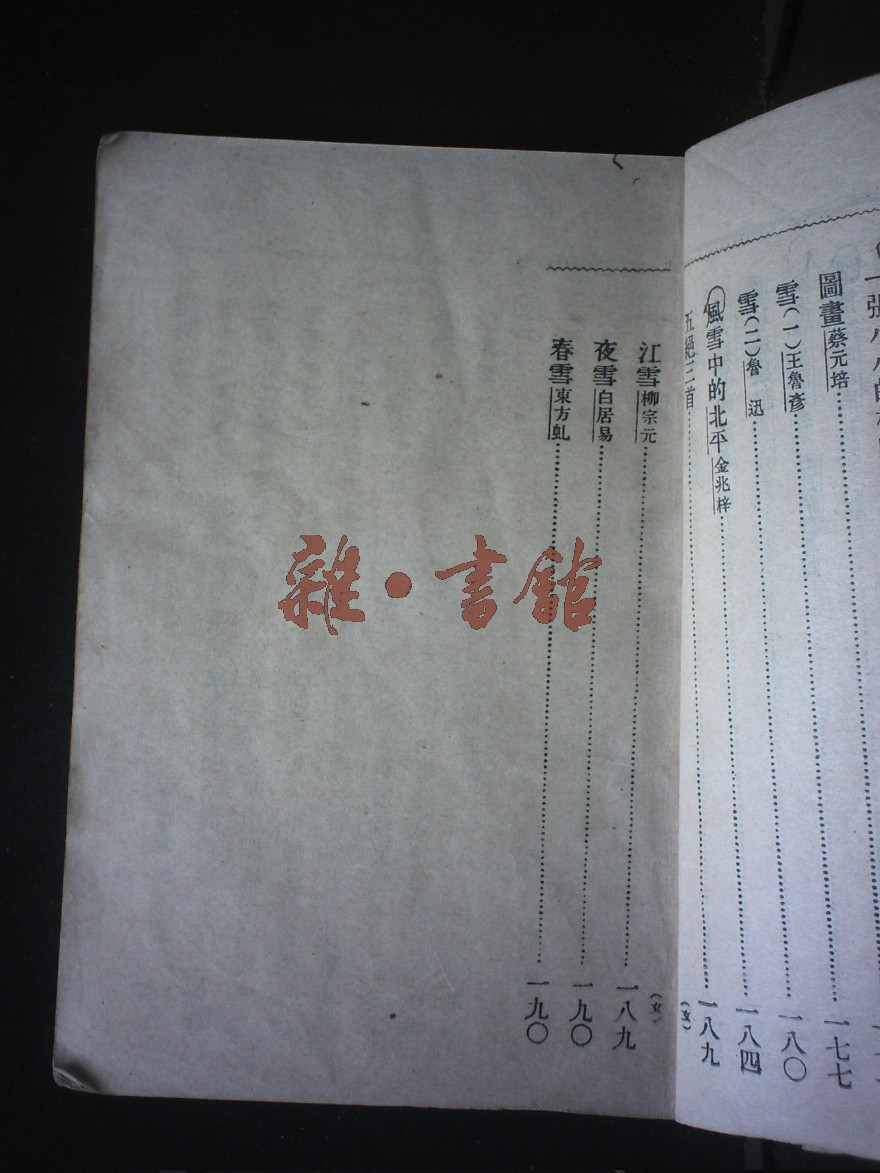 張小小的
圖畫 蔡元培
雪(一) 王魯彥 一七七
雪(二) 魯迅 一八〇
風雪中的北平 金兆梓 一八四
五絕三首 一八九
江雪 柳宗元 一八九
夜雪 白居易 一九〇
春雪 東方虬 一九〇
雜·書館